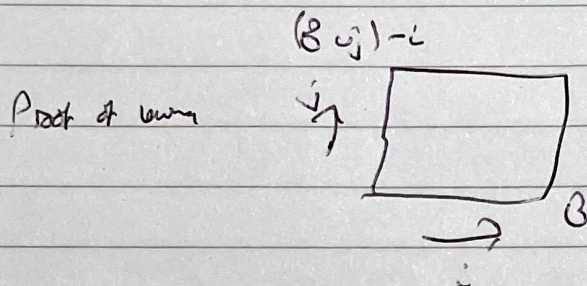 (B ∪ j) - i
Proof of lemma
j
B
i